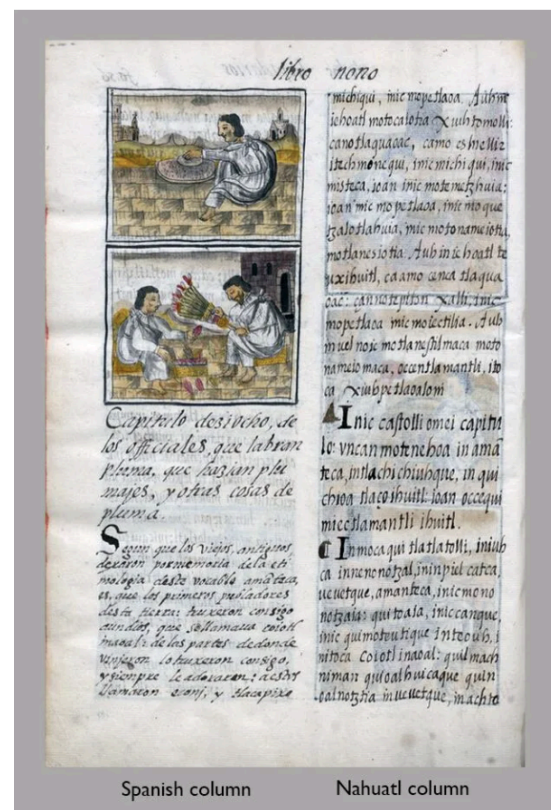 libro nono
Capitulo deziocho, de
los officiales, que labran
pluma, que hazian plu
majes, y otras cosas de
pluma.
Segun que los viejos, antiguos,
dexaron por memoria de la eti
mologia deste vocablo amāteca,
es, que los primeros pobladores
desta tierra: truxeron consigo
a un dios, que se llamaua coiotl
inaoal: de las partes de donde
vinjeron lo truxeron consigo,
y siempre le adoraron: a estos
llamaron
michiqui, inic mopetlaoa. Auh in
iehoatl motocaiotia Xiuhtomolli:
ca notlaquaoac, camo cs hellix
itech monequi, inic michiqui, inic
misteca, ioan inic motemetzhuia:
ioan inic mopetlaoa, inic moque
tzalotlahuia, inic motonameiotia,
motlanesiotia. Auh in iehoatl te
uxihuitl, ca amo cenca tlaqua
oac: can notepiton xalli, inic
mopetlaoa inic moiectilia. Auh
in uel noic motlanestilmaca moto
nameio maca, occentlamantli, ito
ca Xiuhpetlaoaloni
Inic castolli omei capitu
lo: uncan motenehoa in amā
teca, in tlachichiuhque, in qui
chioa tlaçoihuitl: ioan occequi
miectlamantli ihuitl.
Inmoca qui tlatlatolli, iniuh
ca innenonotzal, ininpiel catca,
ueuetque, amanteca, inicmono
notzaia: quitoaia, inic canque,
inic quimoteutique inteouh, i
nitoca coiotl inaoal: quilmach
niman quioalhuicaque quin
oalnotztia inueuetque, inachto
Spanish column
Nahuatl column